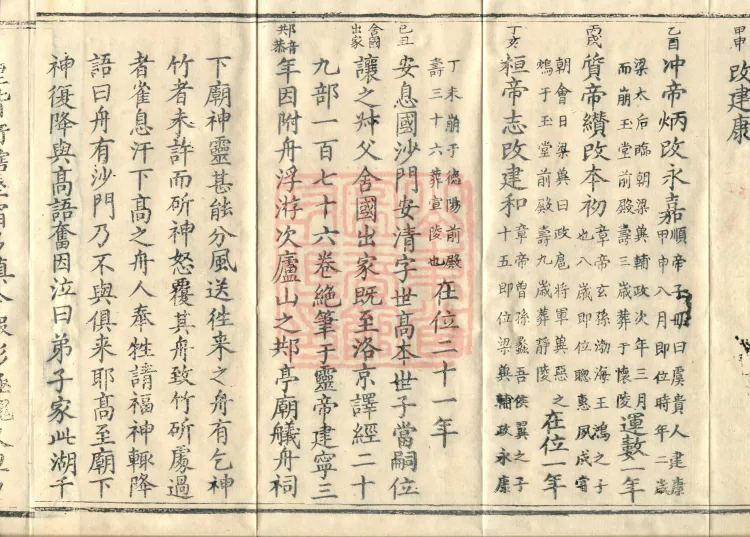 甲申
改建康
乙酉
冲帝炳改永嘉
順帝子毋曰虞貴人建康
甲申八月即位時年二歲
梁太后臨朝梁兾輔政次年三月
而崩玉堂前殿壽三歲葬于懷陵
運數一年
丙戌
質帝纘改本初
章帝玄孫渤海王鴻之子
也八歲即位聰惠夙成甞
朝會日梁兾曰政扈將軍兾惡之
鴆于玉堂前殿壽九歲葬靜陵
在位一年
丁亥
桓帝志改建和
章帝曾孫蠡吾侯翼之子
十五即位梁兾輔政永康
丁未崩于德陽前殿
壽三十六葬宣陵也
在位二十一年
己丑
安息國沙門安清字世高本世子當嗣位
舍國
出家
讓之叔父舍國出家既至洛京譯經二十
九部一百七十六卷絶筆于靈帝建寧三
䢼音
恭
年因附舟浮游次廬山之䢼亭廟艤舟祠
下廟神靈甚能分風送徃来之舟有乞神
竹者未許而斫神怒覆其舟致竹斫處過
者雀息汗下高之舟人奉牲請福神輙降
語曰舟有沙門乃不與俱来耶高至廟下
神復降與高語奮因泣曰弟子家此湖千